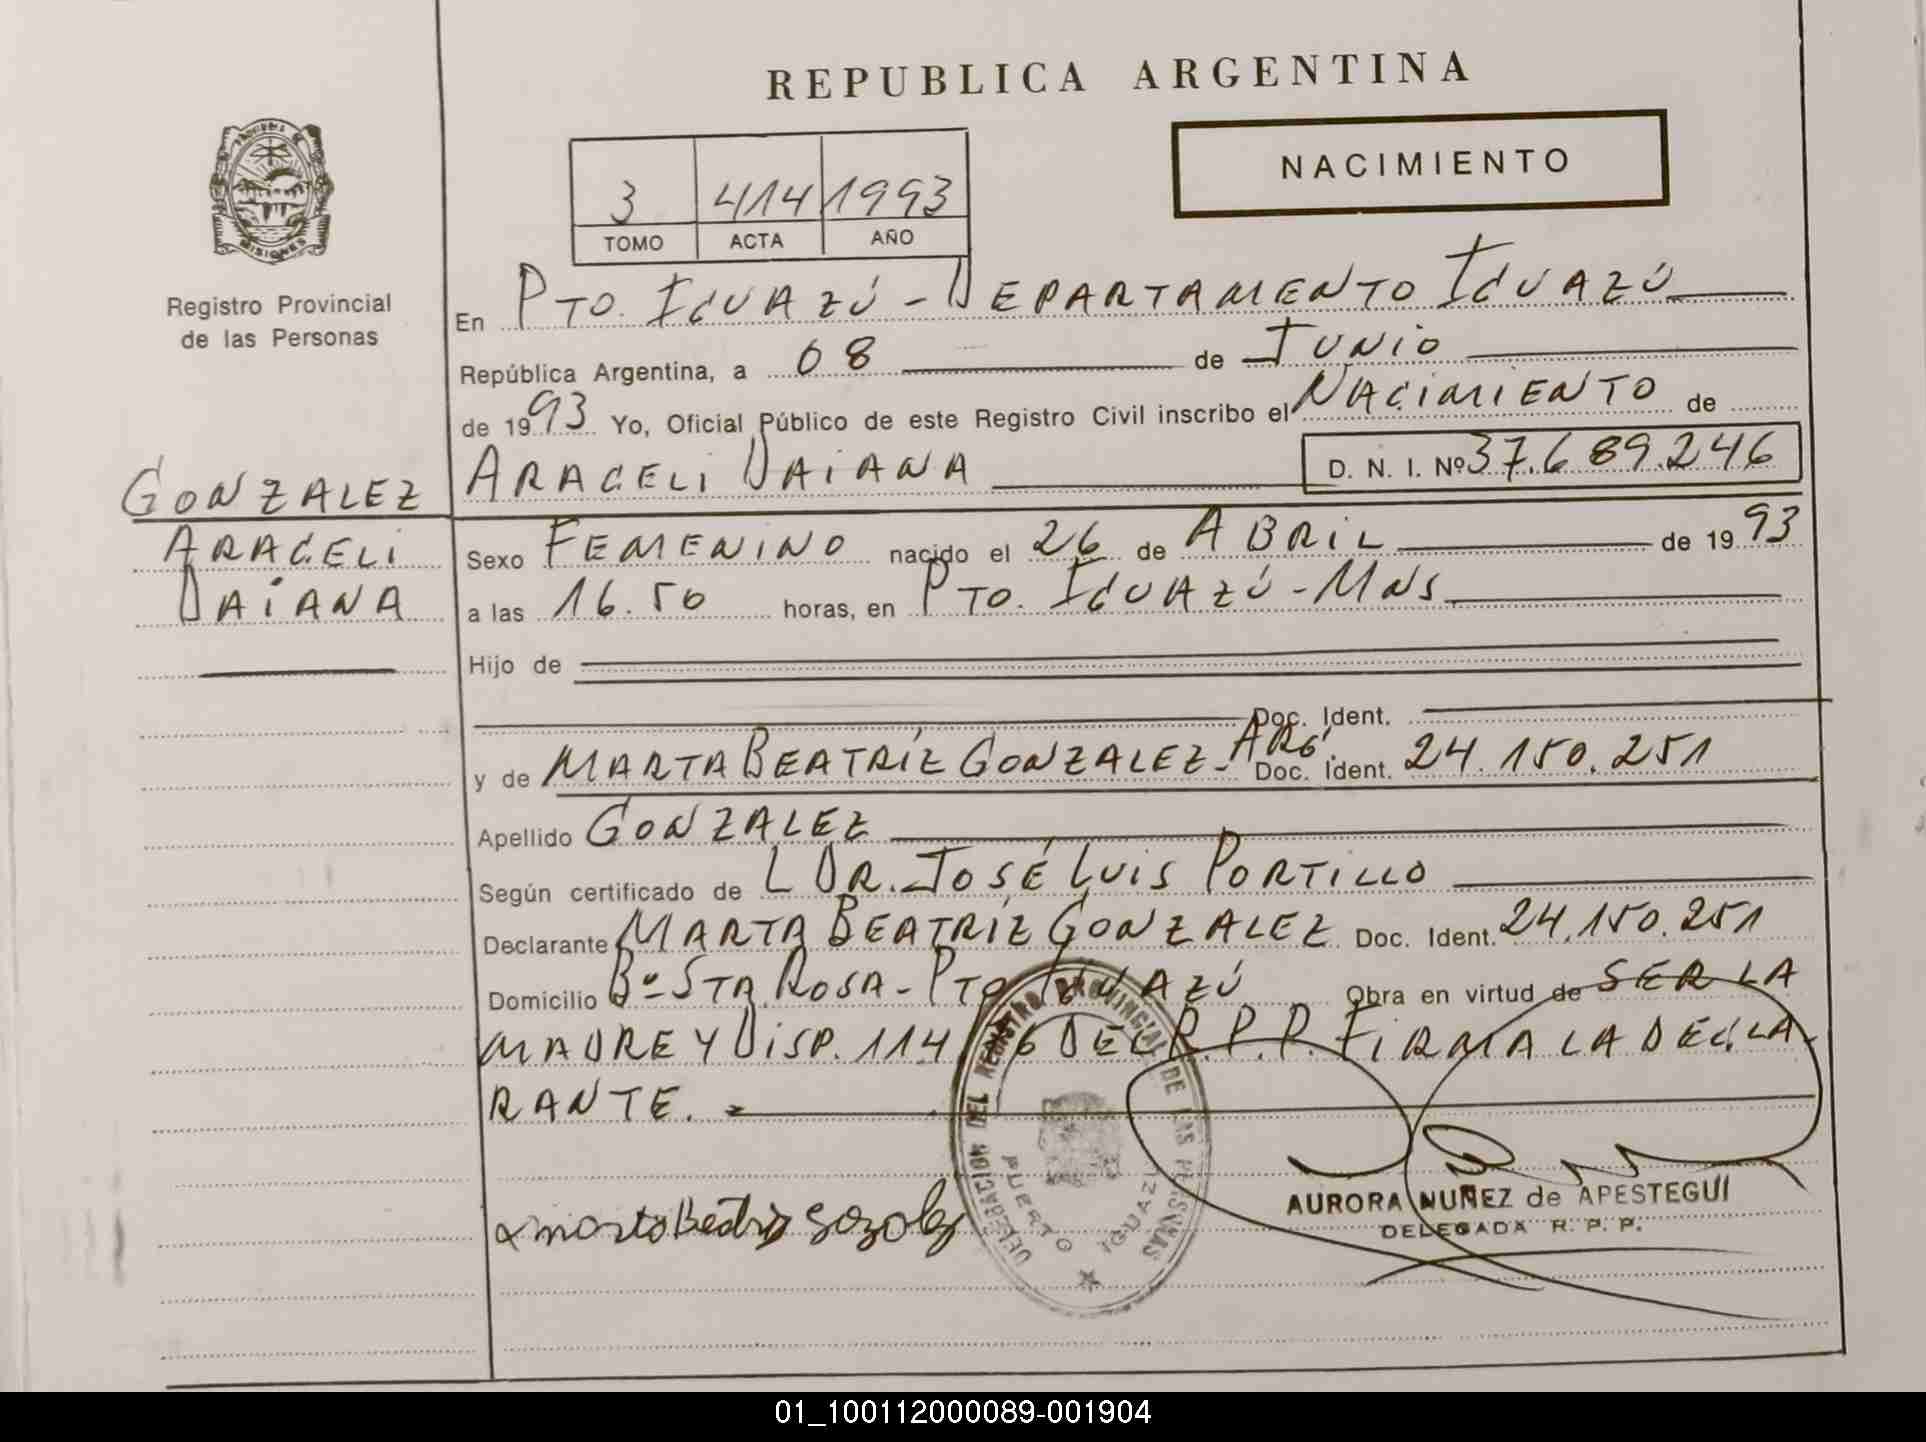 REPUBLICA ARGENTINA
NACIMIENTO
3 414 1993
TOMO ACTA AÑO
PROVINCIA DE
MISIONES
Registro Provincial
de las Personas
En PTO. IGUAZÚ - DEPARTAMENTO IGUAZÚ
República Argentina, a 08 de JUNIO
de 1993 Yo, Oficial Público de este Registro Civil inscribo el NACIMIENTO de
GONZALEZ ARACELI DAIANA D. N. I. Nº 37.689.246
ARACELI Sexo FEMENINO nacido el 26 de ABRIL de 1993
DAIANA a las 16.50 horas, en PTO. IGUAZÚ - MNS
Hijo de
Doc. Ident.
y de MARTA BEATRÍZ GONZALEZ - ARG. Doc. Ident. 24.150.251
Apellido GONZALEZ
Según certificado de L DR. JOSÉ LUIS PORTILLO
Declarante MARTA BEATRÍZ GONZALEZ Doc. Ident. 24.150.251
Domicilio Bº STA ROSA - PTO IGUAZÚ Obra en virtud de SER LA
MADRE Y DISP. 114 6 DEL R.P.P. FIRMA LA DECLA
RANTE. -
DELEGACION DEL REGISTRO PROVINCIAL DE LAS PERSONAS
PUERTO IGUAZU
AURORA NUÑEZ de APESTEGUI
DELEGADA R. P. P.
01_100112000089-001904